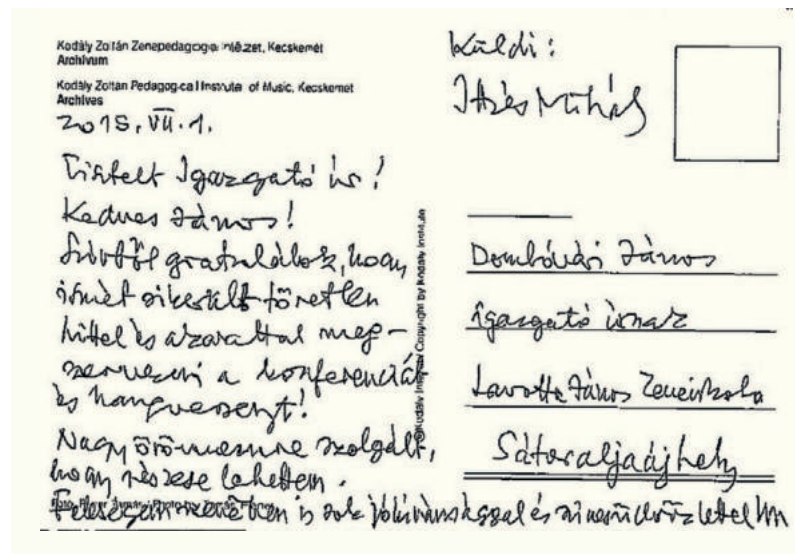 Kodály Zoltán Zenepedagógiai Intézet, Kecskemét
Archívum
Kodály Zoltán Pedagogical Institute of Music, Kecskemét
Archives
2015. VII. 1.
Tisztelt Igazgató úr!
Kedves János!
Szívből gratulálok, hogy
ismét sikerült töretlen
hittel és akarattal meg-
szervezni a konferenciát
és hangversenyt!
Nagy örömemre szolgált,
hogy részese lehettem.
Feleségem nevében is sok jókívánsággal és szíves üdvözlettel
Kodály Institute Copyright by Kodály Institute
Küldi:
Ittzés Mihály
Dombóvári János
igazgató úrnak
Lavotta János Zeneiskola
Sátoraljaújhely